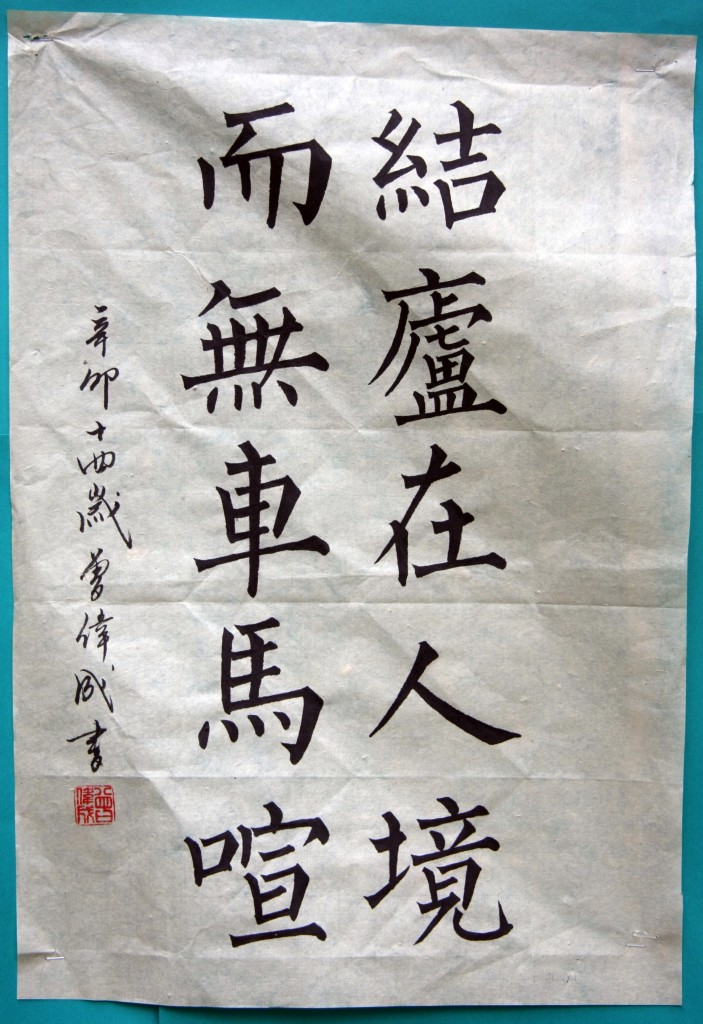 結廬在人境
而無車馬喧
辛卯十四歲曾偉成書
曾偉成